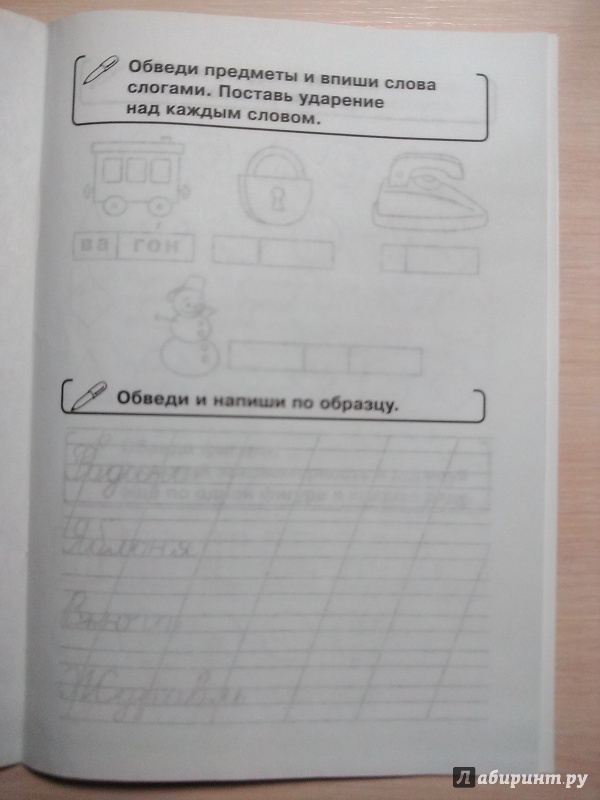 Обведи предметы и впиши слова
слогами. Поставь ударение
над каждым словом.
ва го́н
Обведи и напиши по образцу.
Яблоня
Журавль
Лабиринт.ру